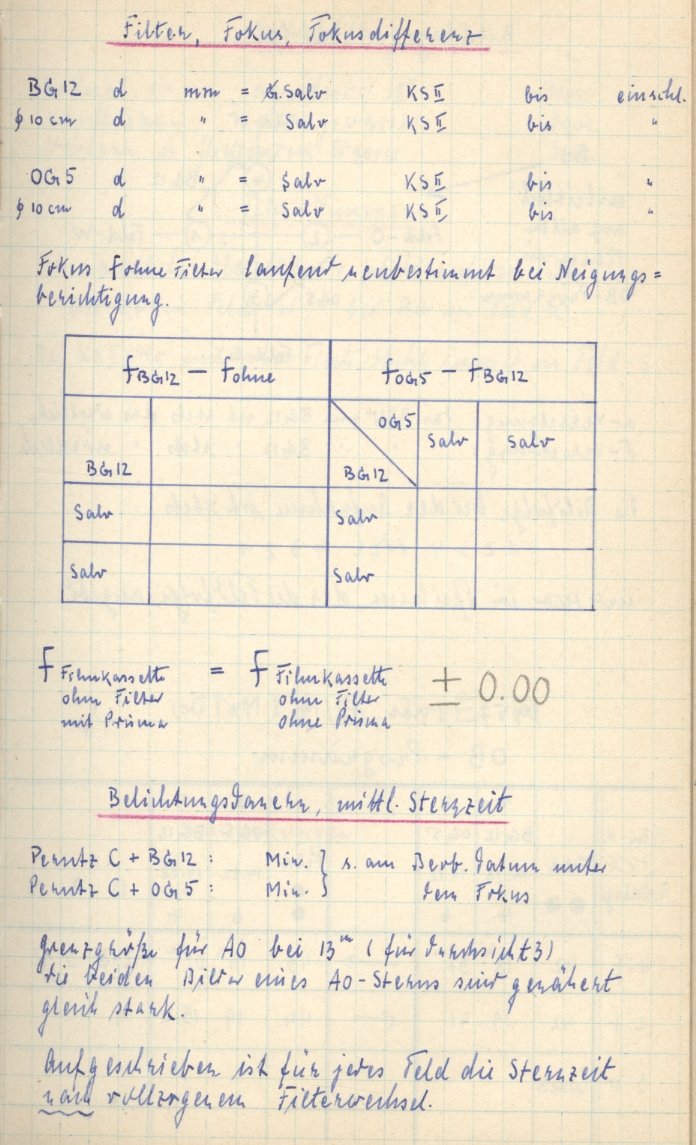 Filter, Fokus, Fokusdifferenz
BG12 d mm = G.Salv KSII bis einschl.
φ 10 cm d " = Salv KSII bis "
OG5 d " = Salv KSII bis "
φ 10 cm d " = Salv KSII bis "
Fokus f ohne Filter laufend neubestimmt bei Neigungs=
berichtigung.
fBG12 – fohne fOG5 – fBG12
OG5 Salv Salv
BG12 BG12
Salv Salv
Salv Salv
f Filmkassette = f Filmkassette ± 0.00
ohne Filter ohne Filter
mit Prisma ohne Prisma
Belichtungsdauern, mittl. Sternzeit
Perutz C + BG12 : Min. } s. am Beob. Datum unter
Perutz C + OG5 : Min. } dem Fokus
Grenzgröße für A0 bei 13ᵐ (für Durchsicht 3)
die beiden Bilder eines A0-Sterns sind genähert
gleich stark.
Aufgeschrieben ist für jedes Feld die Sternzeit
nach vollzogenem Filterwechsel.